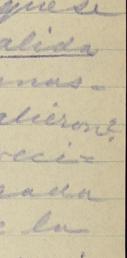 que se
alida
unas-
alieron?
veci=
gada
e la